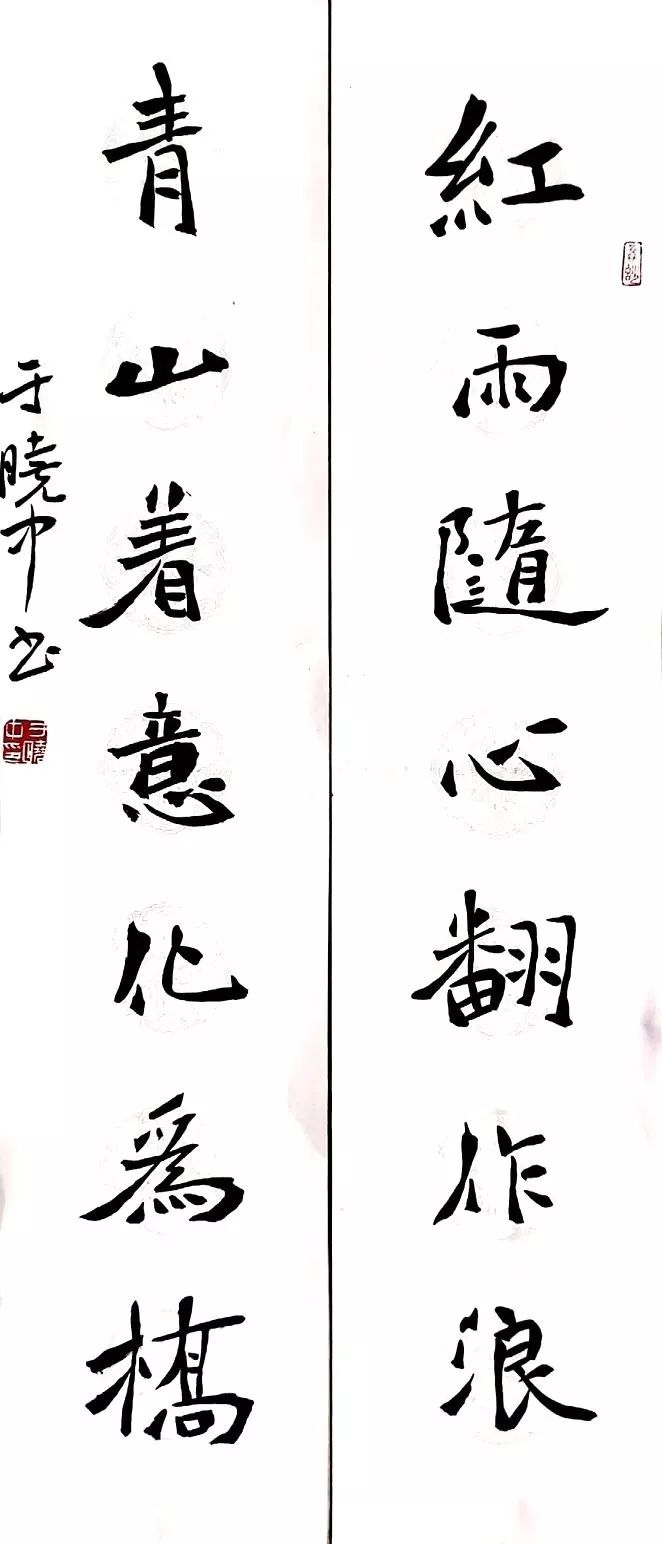 紅雨隨心翻作浪
青山着意化為橋
于曉中书